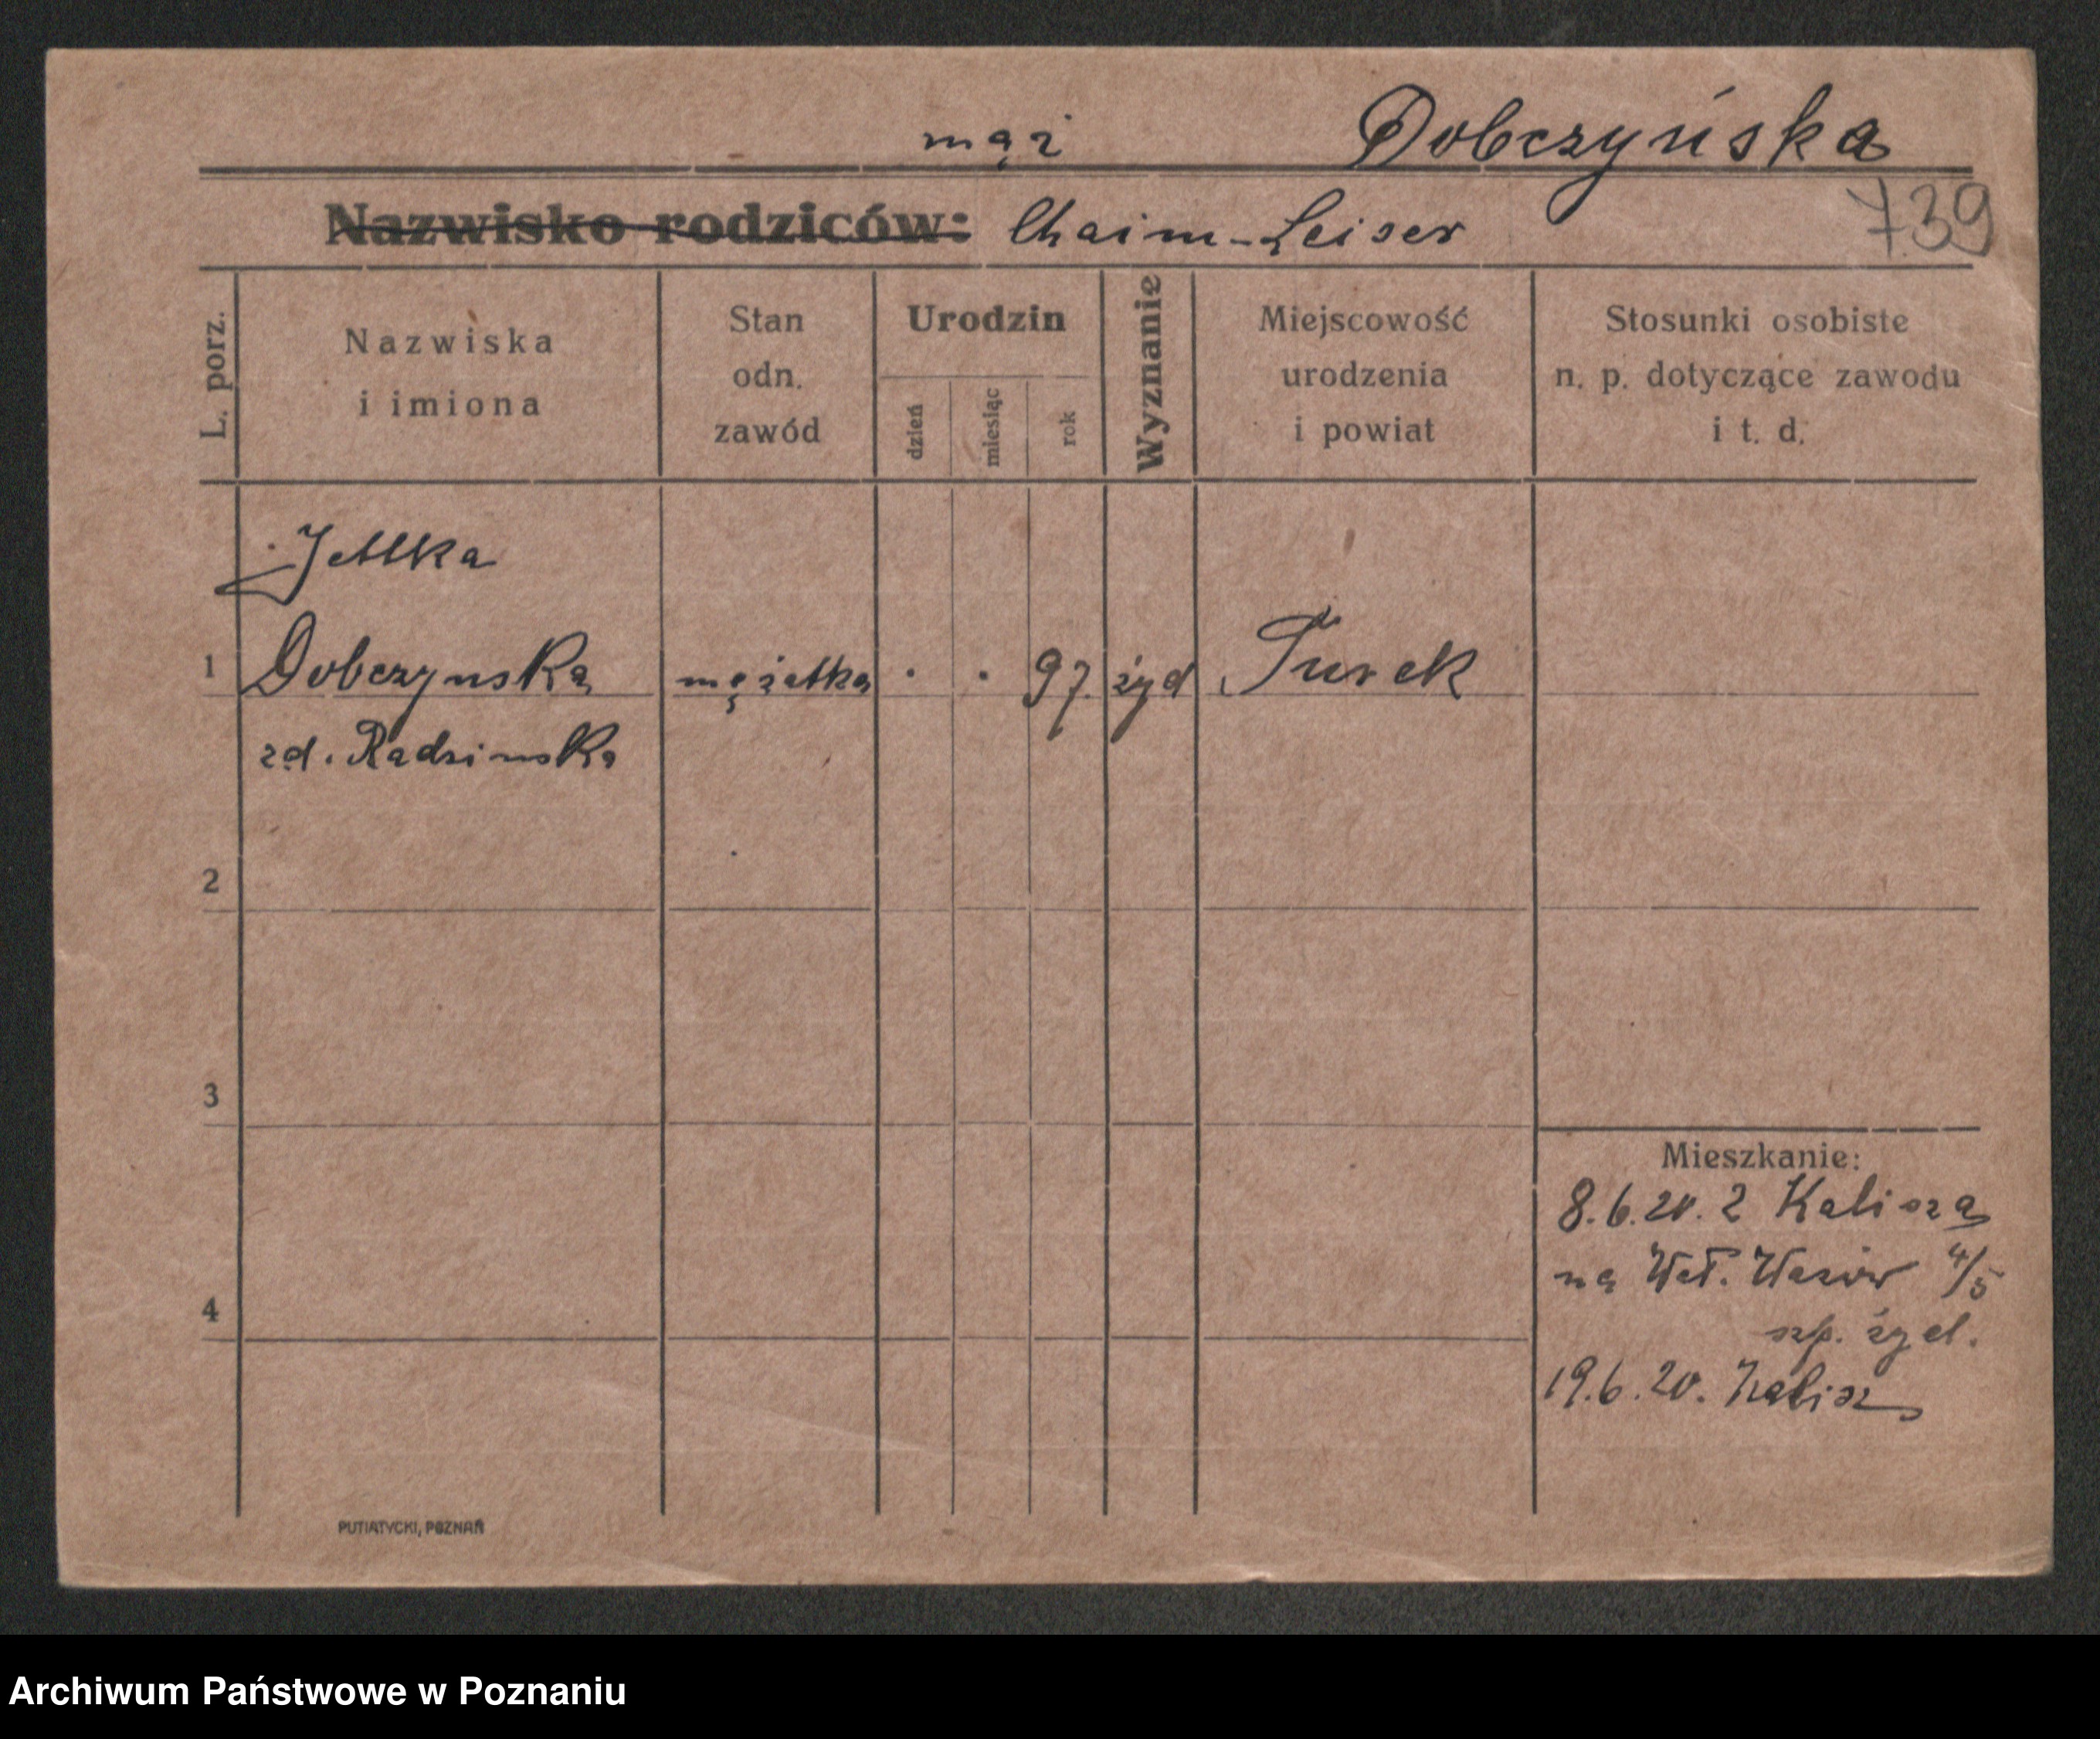 mąż Dobczyńska
Nazwisko rodziców: Chaim-Leiser 739
L. porz.
Nazwiska
i imiona
Stan
odn.
zawód
Urodzin
dzień
miesiąc
rok
Wyznanie
Miejscowość
urodzenia
i powiat
Stosunki osobiste
n. p. dotyczące zawodu
i t. d.
Jettka
1 Dobczynska mężatka . . 97. żyd Turek
zd. Radzinska
2
3
4
Mieszkanie:
8.6.20. z Kalisza
na 4/5
szp. żyd.
19.6.20. Kalisz
PUTIATYCKI, POZNAŃ
Archiwum Państwowe w Poznaniu